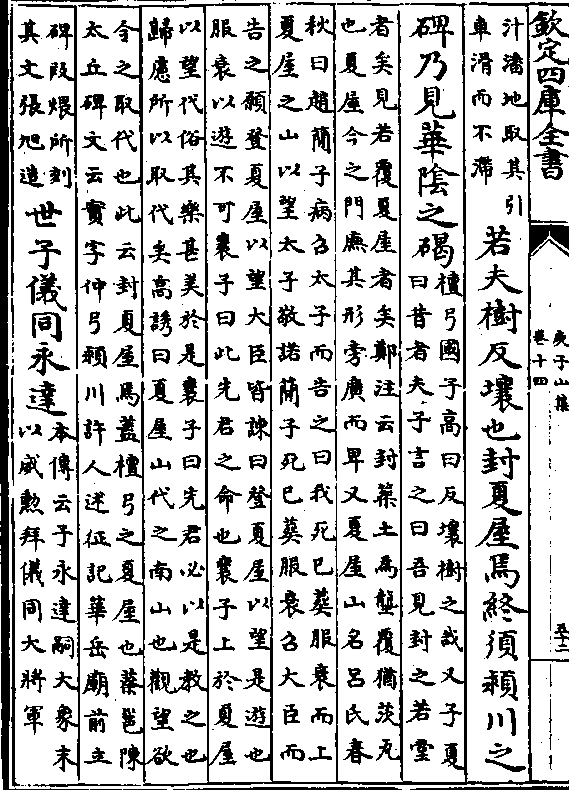 欽定四庫全書
庚子山集
卷十四
五十二
汁潘地取其引
車滑而不滯
若夫樹反壤也封夏屋焉終須潁川之
碑乃見華陰之碣
檀弓國子高曰反壤樹之哉又子夏
曰昔者夫子言之曰吾見封之若堂
者矣見若覆夏屋者矣鄭注云封築土為壟覆猶茨瓦
也夏屋今之門廡其形旁廣而卑又夏屋山名呂氏春
秋曰趙簡子病召太子而告之曰我死已葬服衰而上
夏屋之山以望太子敬諾簡子死已葬服衰召大臣而
告之願登夏屋以望大臣皆諫曰登夏屋以望是遊也
服衰以遊不可襄子曰此先君之命也襄子上於夏屋
以望代俗其樂甚美於是襄子曰先君必以是教之也
歸應所以取代矣高誘曰夏屋山代之南山也觀望欲
令之取代也此云封夏屋焉蓋檀弓之夏屋也蔡邕陳
太丘碑文云實字仲弓潁川許人述征記華岳廟前立
碑段煨所刻
其文張旭造
世子儀同永達
本傳云子永達嗣大象末
以威勲拜儀同大將軍